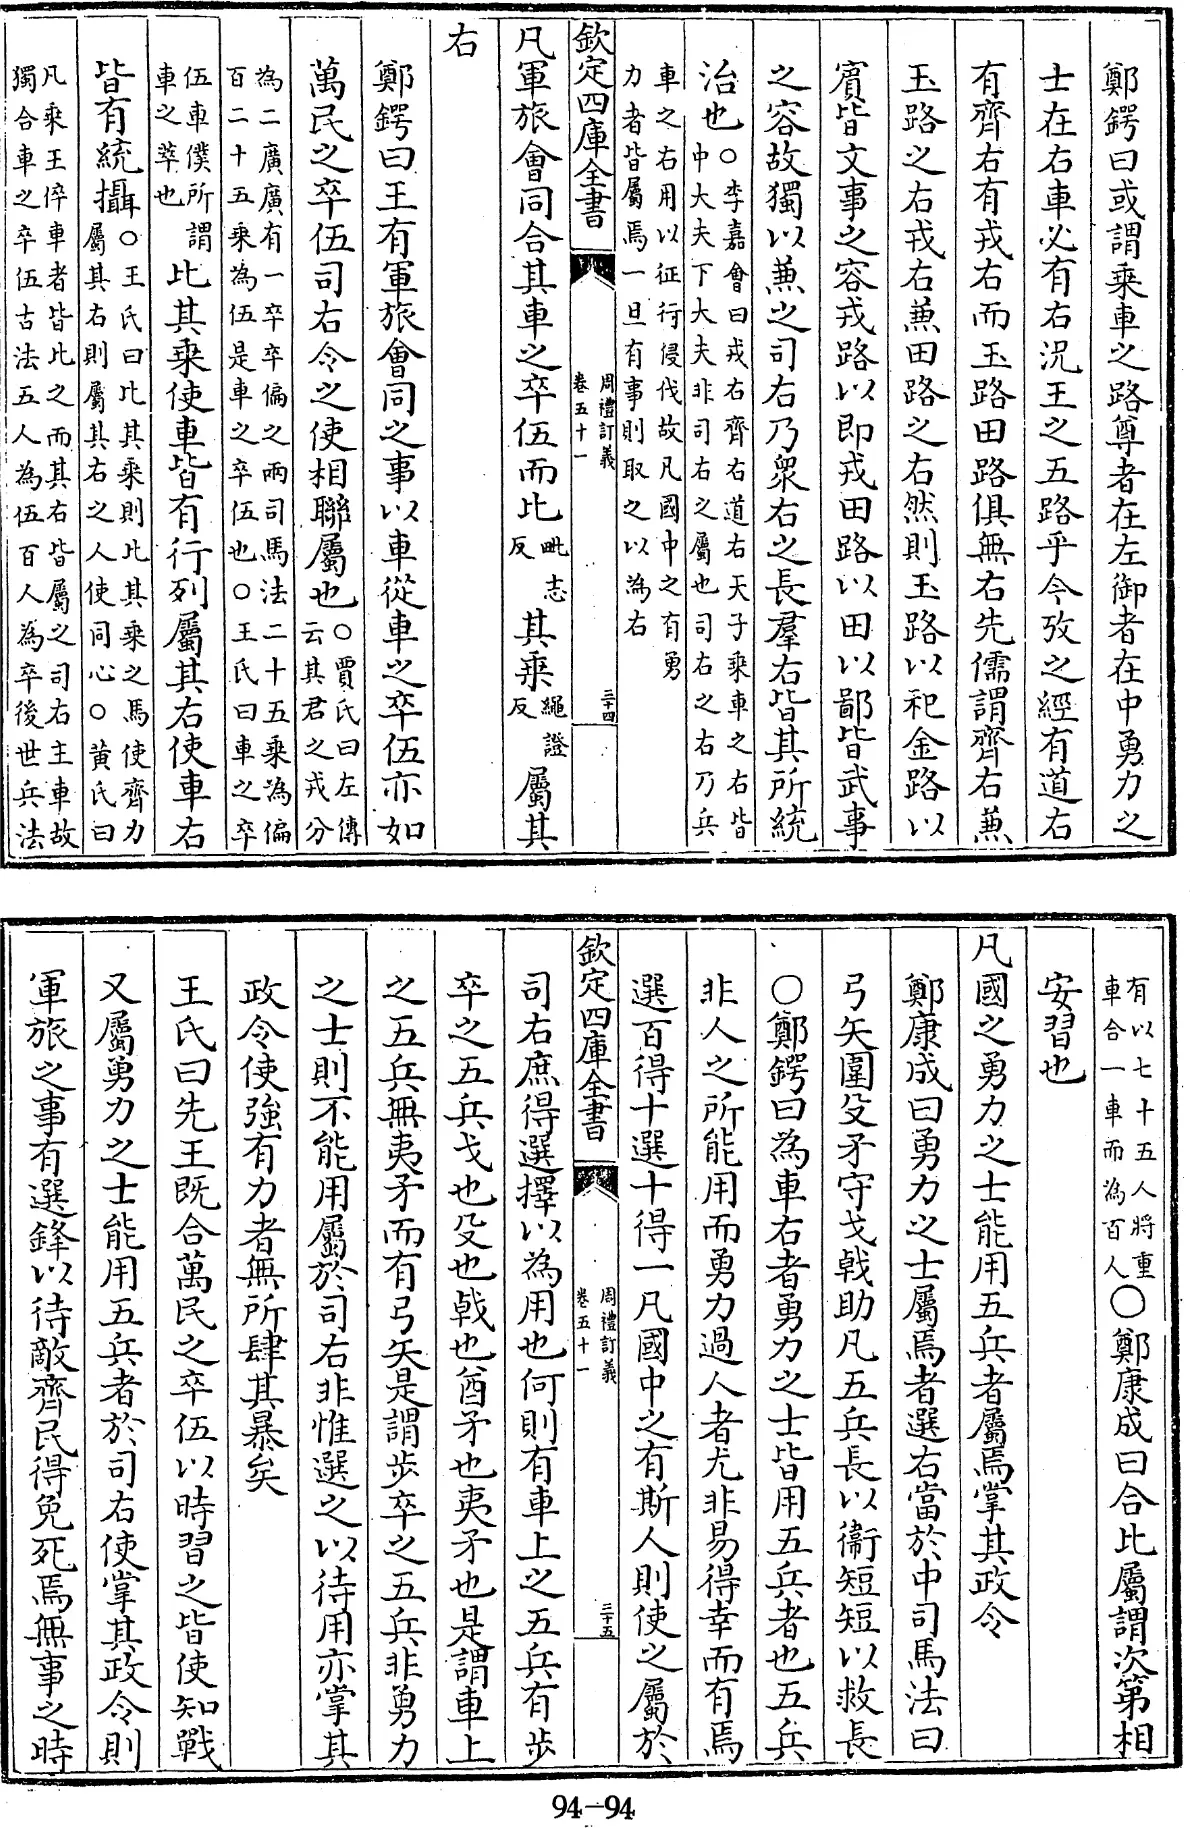 鄭鍔曰或謂乘車之路尊者在左御者在中勇力之
士在右車必有右況王之五路乎今攷之經有道右
有齊右有戎右而玉路田路俱無右先儒謂齊右兼
玉路之右戎右兼田路之右然則玉路以祀金路以
賓皆文事之容戎路以即戎田路以田以鄙皆武事
之容故獨以兼之司右乃衆右之長羣右皆其所統
治也○李嘉會曰戎右齊右道右天子乘車之右皆
中大夫下大夫非司右之屬也司右之右乃兵
車之右用以征行侵伐故凡國中之有勇
力者皆屬焉一旦有事則取之以為右
欽定四庫全書
周禮訂義
卷五十一
三十四
凡軍旅會同合其車之卒伍而比毗志反其乘繩證反屬其
右
鄭鍔曰王有軍旅會同之事以車從車之卒伍亦如
萬民之卒伍司右令之使相聯屬也○賈氏曰左傳
云其君之戎分
為二廣廣有一卒卒偏之兩司馬法二十五乘為偏
百二十五乘為伍是車之卒伍也○王氏曰車之卒
伍車僕所謂
車之萃也比其乘使車皆有行列屬其右使車右
皆有統攝○王氏曰比其乘則比其乘之馬使齊力
屬其右則屬其右之人使同心○黃氏曰
凡乘王倅車者皆比之而其右皆屬之司右主車故
獨合車之卒伍古法五人為伍百人為卒後世兵法
有以七十五人將重
車合一車而為百人○鄭康成曰合比屬謂次第相
安習也
凡國之勇力之士能用五兵者屬焉掌其政令
鄭康成曰勇力之士屬焉者選右當於中司馬法曰
弓矢圍殳矛守戈戟助凡五兵長以衞短短以救長
○鄭鍔曰為車右者勇力之士皆用五兵者也五兵
非人之所能用而勇力過人者尤非易得幸而有焉
選百得十選十得一凡國中之有斯人則使之屬於
欽定四庫全書
周禮訂義
卷五十一
三十五
司右庶得選擇以為用也何則有車上之五兵有步
卒之五兵戈也殳也戟也酋矛也夷矛也是謂車上
之五兵無夷矛而有弓矢是謂步卒之五兵非勇力
之士則不能用屬於司右非惟選之以待用亦掌其
政令使強有力者無所肆其暴矣
王氏曰先王既合萬民之卒伍以時習之皆使知戰
又屬勇力之士能用五兵者於司右使掌其政令則
軍旅之事有選鋒以待敵齊民得免死焉無事之時
94-94